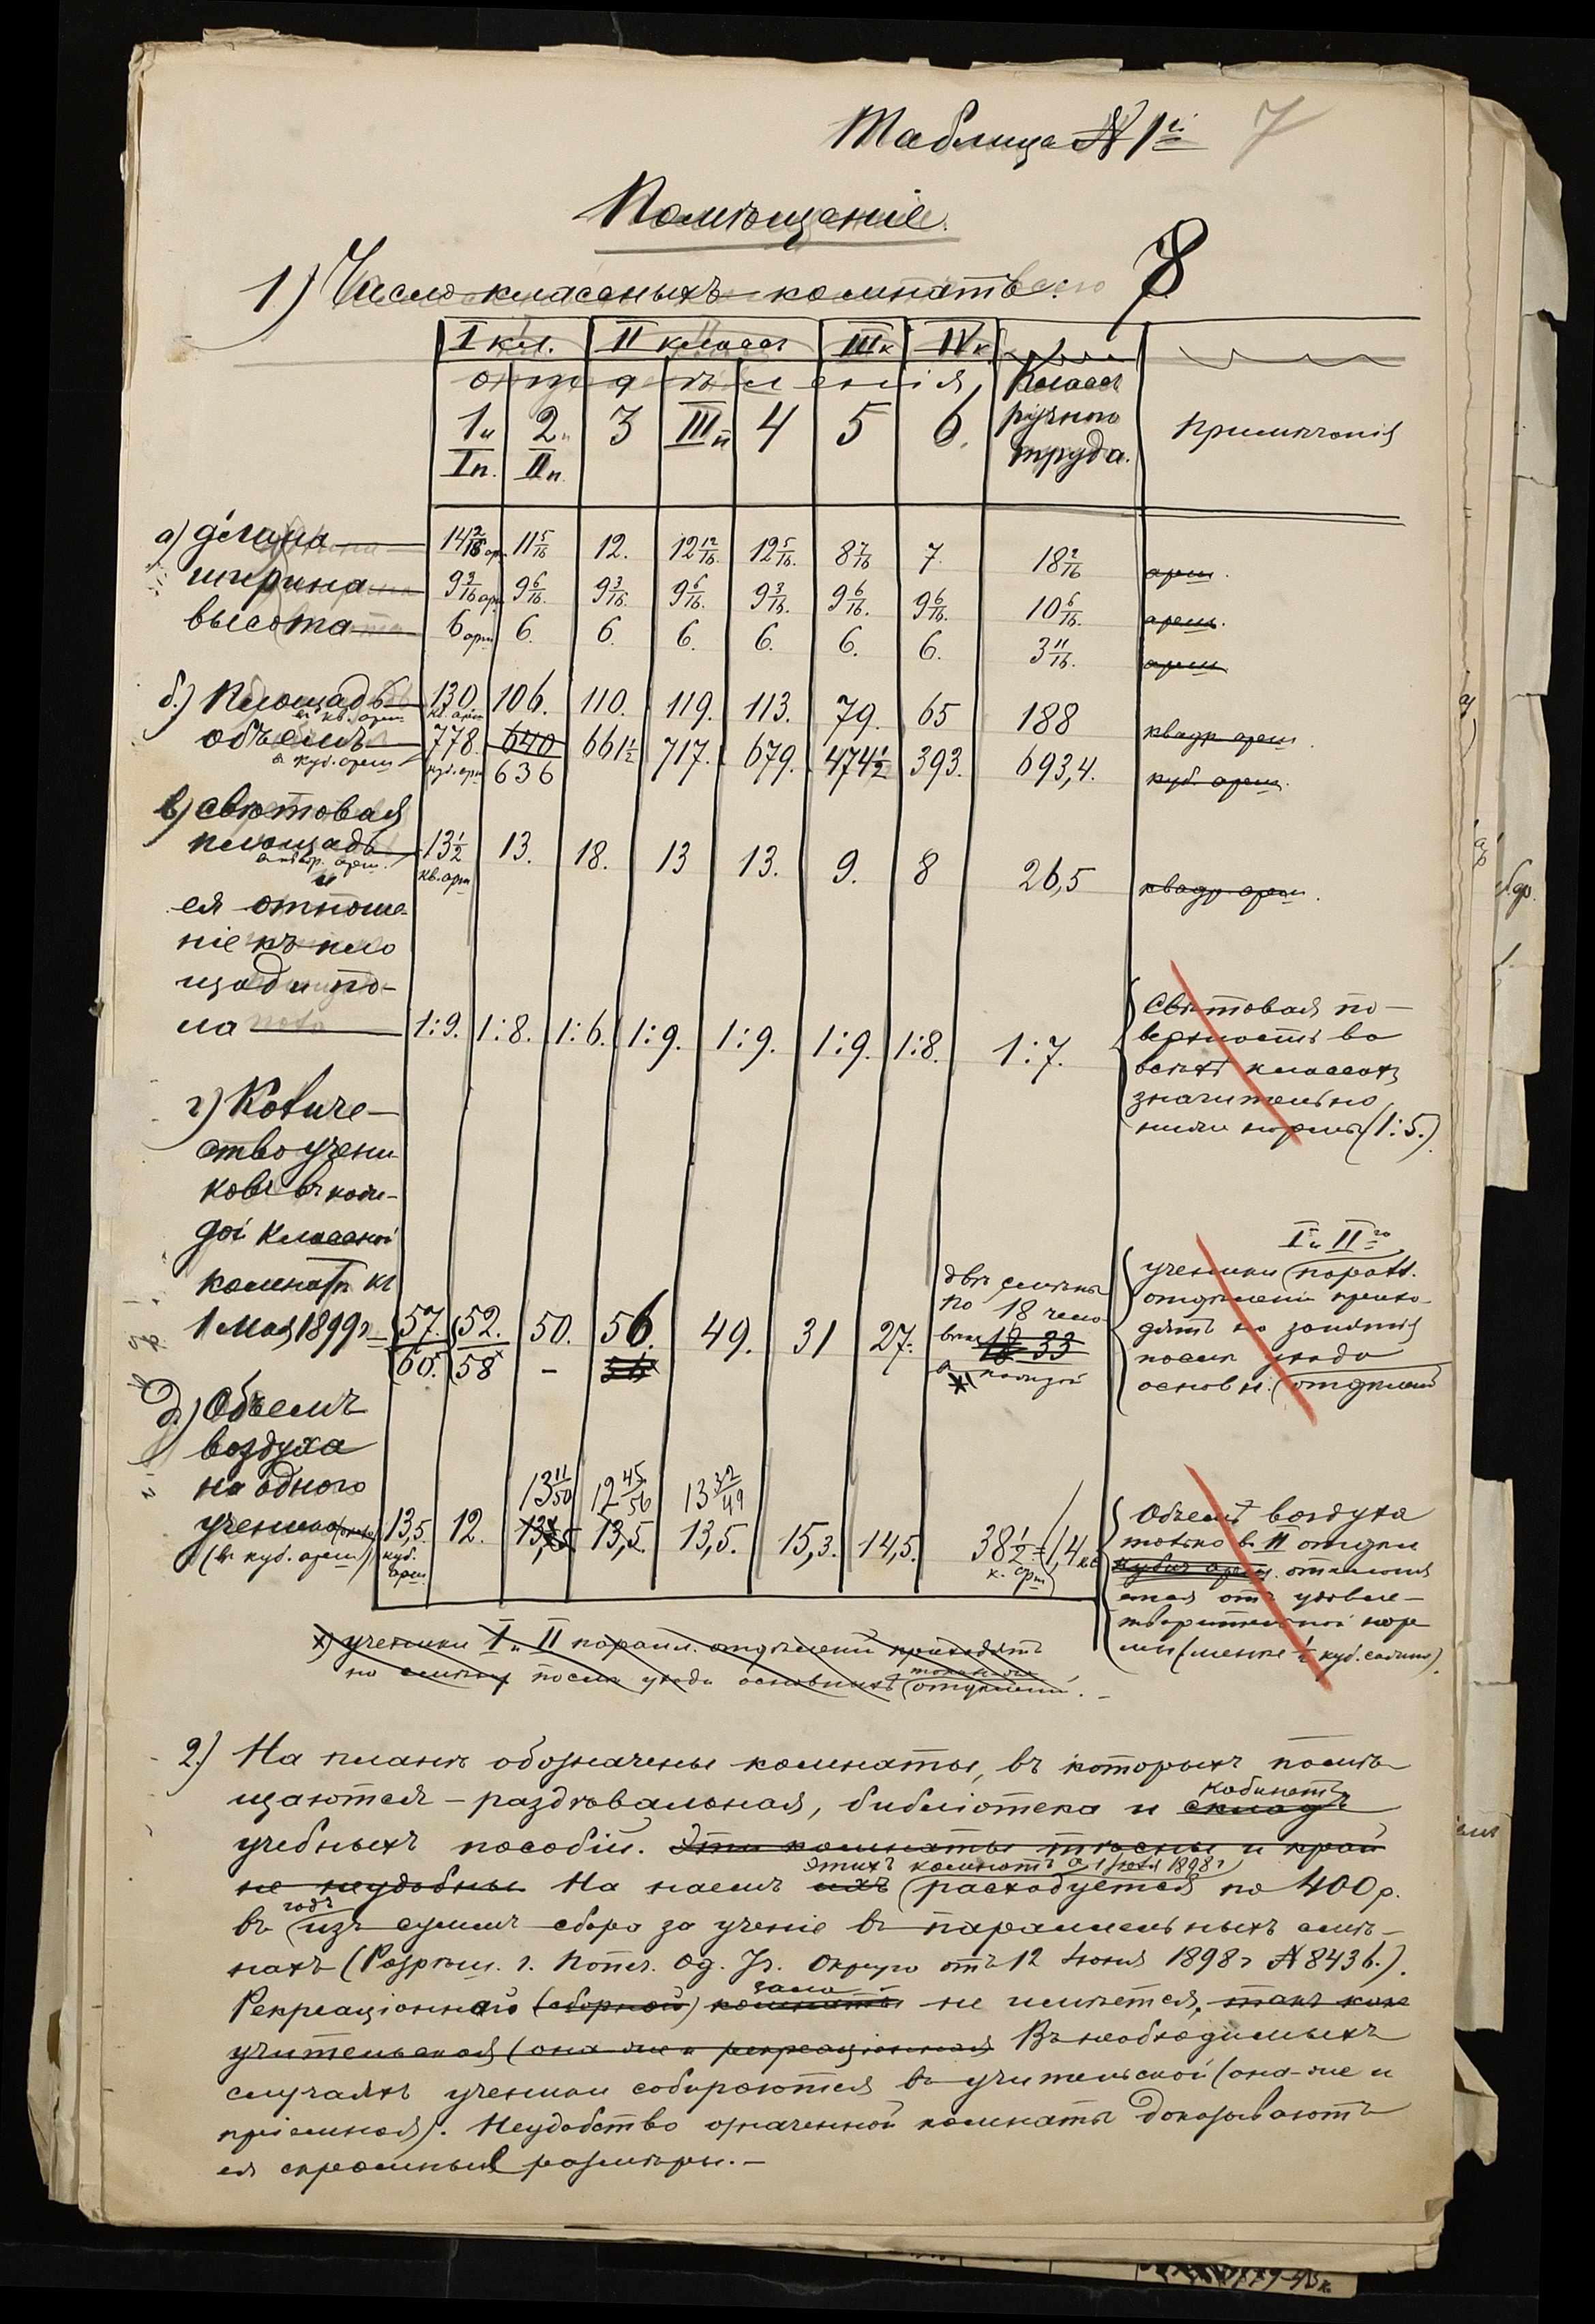 Таблица № 1й 7
Помѣщеніе.
1) Число классныхъ комнатъ всего 8
I кл. II классъ III к IV к
отдѣленія Классъ ручного труда. Примѣчанія
1 и I п. 2 и II п. 3 III п 4 5 6.
а) длина 14 2/16 арш 11 5/16 12. 12 12/16. 12 5/16. 8 7/16 7. 18 2/16 арш.
ширина 9 3/16 арш 9 6/16. 9 3/16. 9 6/16. 9 3/16. 9 6/16. 9 6/16. 10 6/16. арш.
высота 6 арш 6. 6. 6. 6. 6. 6. 3 11/16. арш.
б.) Площадь 130. 106. 110. 119. 113. 79. 65 188 квадр арш.
въ кв. арш. кв. арш
объемъ 778. 640 661 1/2 717. 679. 474 1/2 393. 693,4. куб. арш.
въ куб. арш куб. арш 636
в) свѣтовая
площадь 13 1/2 13. 18. 13 13. 9. 8 26,5 квадр. арш.
въ квадр. арш. кв. арш
и
ея отноше-
ніе къ пло
щади по-
ла 1:9. 1:8. 1:6. 1:9. 1:9. 1:9. 1:8. 1:7.
Свѣтовая по-
верхность во
всѣхъ классахъ
значительно
ниже нормы (1:5.)
г) Количе-
ство учени
ковъ въ каж-
дой классной
комнатѣ къ
1 Мая 1899 г. 57. 52. 50. 56. 49. 31 27.
60. 58 - 56
двѣ смѣны
по 18 чело
вѣкъ 18 33
въ каждой
I и II го
ученики паралл.
отдѣленій прихо-
дятъ на занятія
послѣ ухода
основн. отдѣленій
д.) Объемъ
воздуха
на одного
ученика 13,5. 12. 13 11/50 12 45/56 13 32/49 15,3. 14,5. 38 1/2 = 1,4 кс
(въ куб. арш.) куб. арш. 13,5 13,5. 13,5. к. арш
Объемъ воздуха
только въ II отдѣл
кубич арш. отклоня
ется отъ удовле-
творительной нор-
мы (менѣе 1/2 куб. сажени).
х) ученики I и II паралл. отдѣленій приходятъ
на смѣну послѣ ухода основныхъ отдѣленій.
2.) На планѣ обозначены комнаты, въ которыхъ помѣ
щаются - раздѣвальная, библіотека и складъ кабинетъ
учебныхъ пособій. Эти комнаты тѣсны и край
не неудобны На наемъ ихъ этихъ комнатъ съ 1 1898 г расходуется по 400 р.
въ годъ изъ суммъ сбора за ученіе въ параллельныхъ смѣ-
нахъ (Разрѣш. г. Попеч. Од. Уч. Округа отъ 12 Іюня 1898 г № 8436.).
Рекреаціоннаго (сборной) комнаты зала не имѣется, такъ какъ
учительская (она же и рекреаціонная Въ необходимыхъ
случаяхъ ученики собираются въ учительской (она-же и
пріемная). Неудобство означенной комнаты доказываютъ
ея скромные размѣры. -